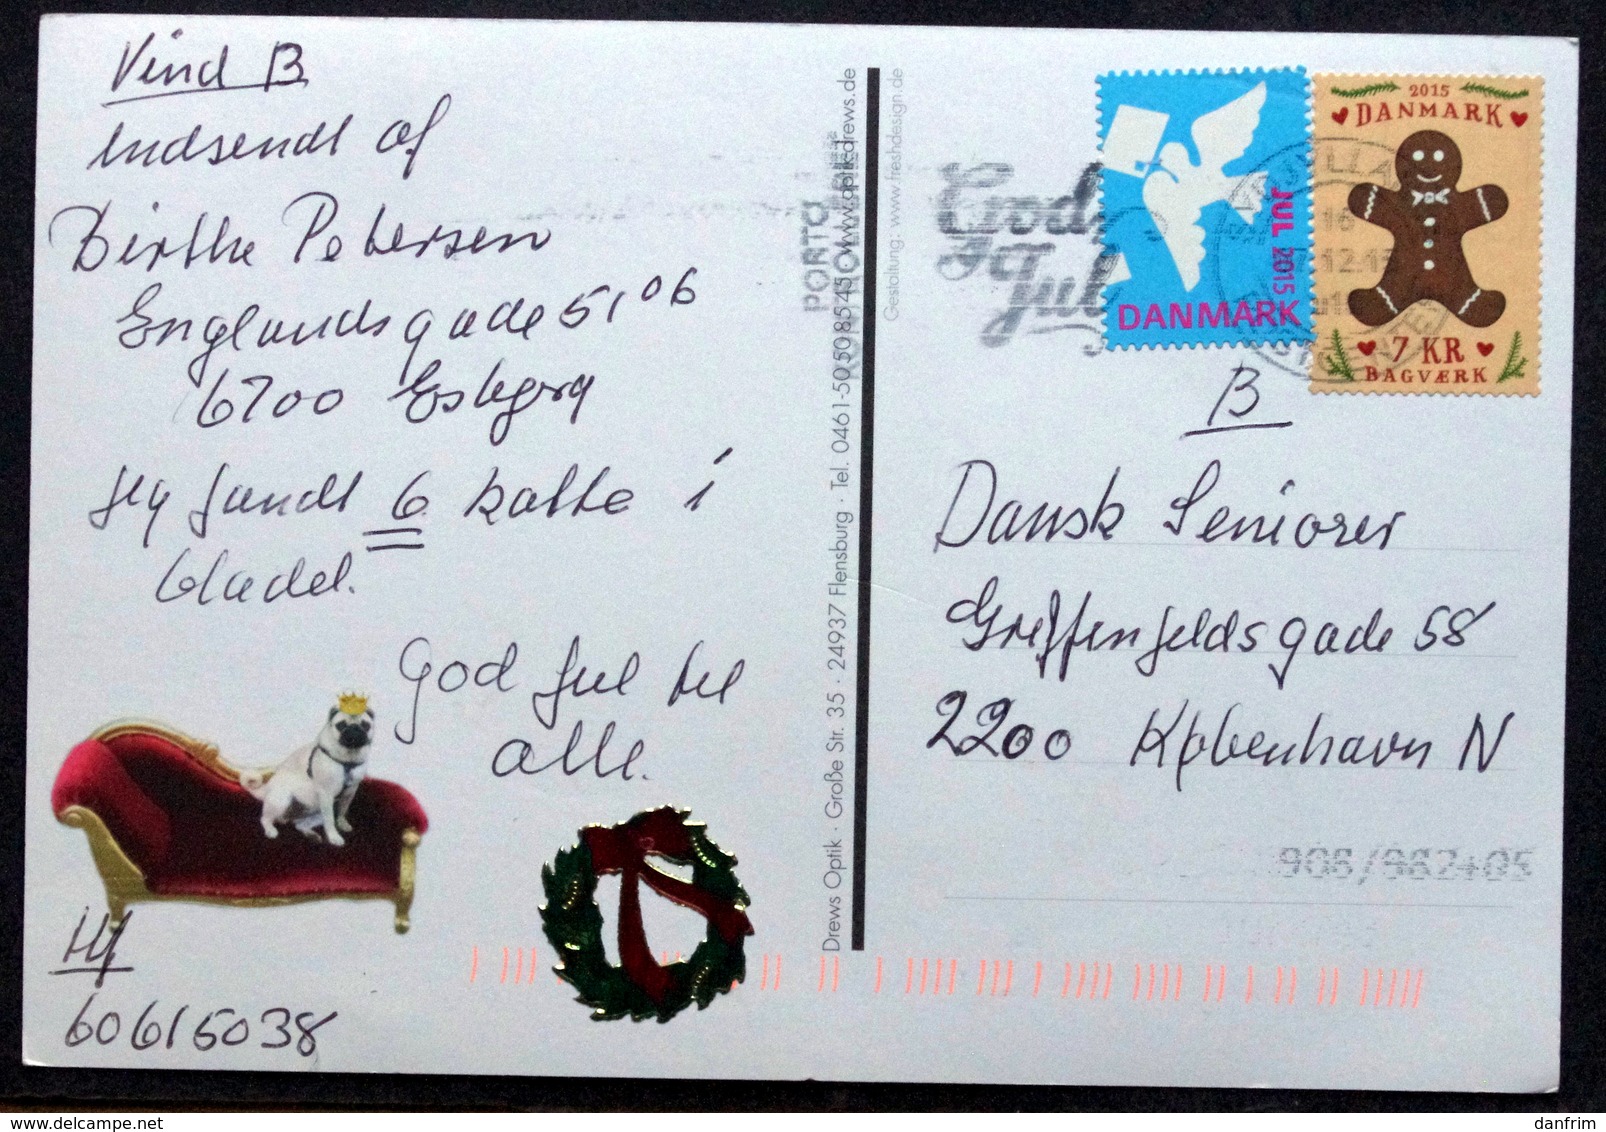 Vind B
Indsendt af
Birthe Petersen
Englandsgade 51 06
6700 Esbjerg
Jeg fandt 6 katte i
bladet.
God Jul til
alle.
Tlf
60615038
Drews Optik · Große Str. 35 · 24937 Flensburg · Tel. 0461-50508545 · www.optikdrews.de
Gestaltung: www.freshdesign.de
PORTO
God
Jul
JUL 2015
DANMARK
2015
DANMARK
7 KR
BAGVÆRK
B
Dansk Seniorer
Griffenfeldsgade 58
2200 København N
908/982+05
danfrim